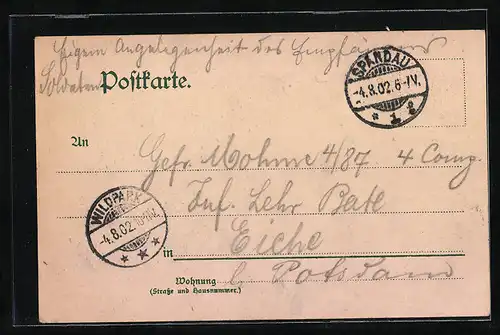 Eigene Angelegenheit des Empfängers
Soldaten
Postkarte.
SPANDAU
-4.8.02.6-7N.
* 1 g
An
Gefr. Mohme 4/87 4 Comp.
Inf. Lehr Batl.
WILDPARK
-4.8.02.
* * *
in Eiche
b. Potsdam
Wohnung
(Straße und Hausnummer.)